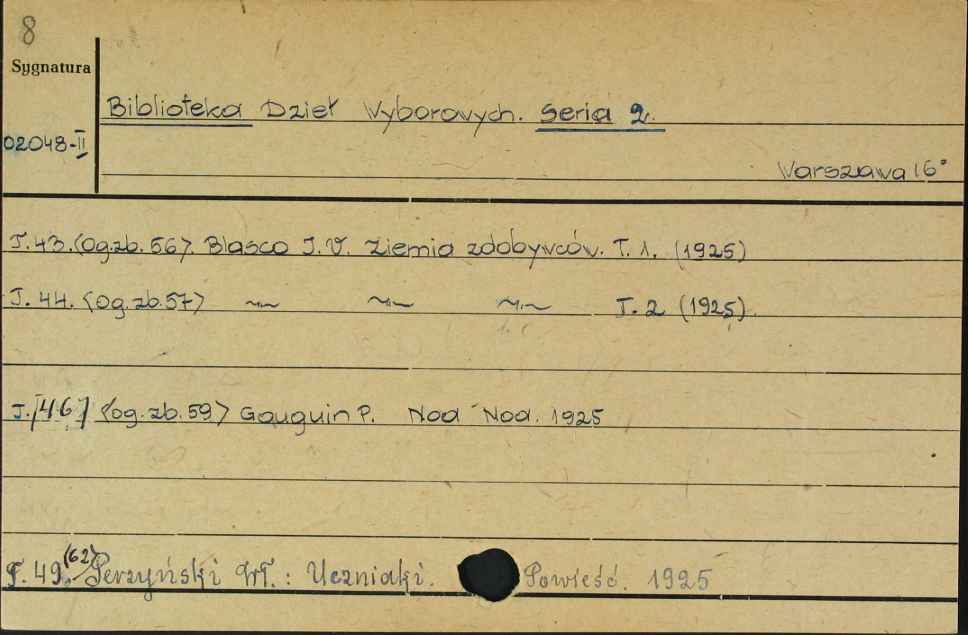 8
Sygnatura
Biblioteka Dzieł Wyborowych. Seria 2.
02048-II
Warszawa 16°
T. 43. (Og.zb. 56). Blasco I. V. Ziemia zdobywców. T. 1. (1925)
T. 44. (Og.zb. 57) ~"~ ~"~ ~"~ T. 2 (1925).
T. [46] (og.zb. 59) Gauguin P. Noa Noa. 1925
T. 49. (62) Perzyński Wł.: Uczniaki. Powieść. 1925